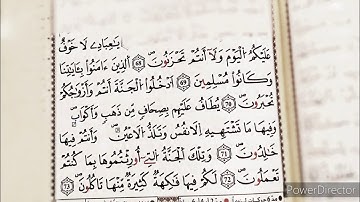 يَٰعِبَادِ لَا خَوْفٌ
عَلَيْكُمُ ٱلْيَوْمَ وَلَآ أَنتُمْ تَحْزَنُونَ ٦٨ ٱلَّذِينَ ءَامَنُوا۟ بِـَٔايَٰتِنَا
وَكَانُوا۟ مُسْلِمِينَ ٦٩ ٱدْخُلُوا۟ ٱلْجَنَّةَ أَنتُمْ وَأَزْوَٰجُكُمْ
تُحْبَرُونَ ٧٠ يُطَافُ عَلَيْهِم بِصِحَافٍ مِّن ذَهَبٍ وَأَكْوَابٍ
وَفِيهَا مَا تَشْتَهِيهِ ٱلْأَنفُسُ وَتَلَذُّ ٱلْأَعْيُنُ وَأَنتُمْ فِيهَا
خَٰلِدُونَ ٧١ وَتِلْكَ ٱلْجَنَّةُ ٱلَّتِىٓ أُورِثْتُمُوهَا بِمَا كُنتُمْ
تَعْمَلُونَ ٧٢ لَكُمْ فِيهَا فَٰكِهَةٌ كَثِيرَةٌ مِّنْهَا تَأْكُلُونَ ٧٣
PowerDirector